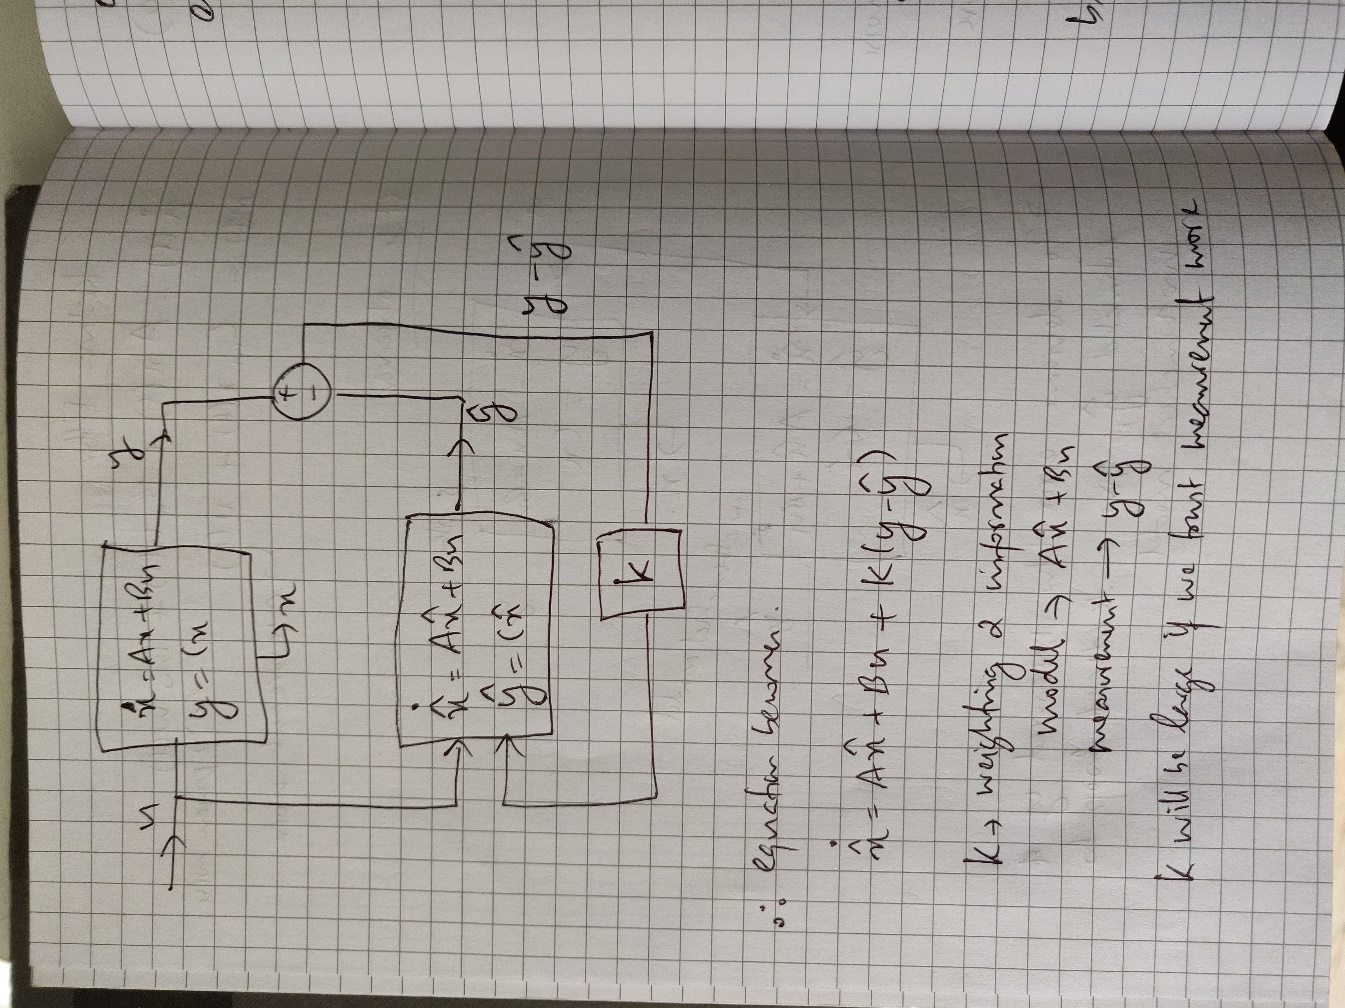 u
ẋ = Ax + Bu
y = Cx
y
x
+
−
x̂̇ = Ax̂ + Bu
ŷ = Cx̂
ŷ
y-ŷ
K
∴ equation becomes.
x̂̇ = Ax̂ + Bu + K(y-ŷ)
K → weighting 2 information
model → Ax̂ + Bu
measurement → y-ŷ
K will be large if we trust measurement more